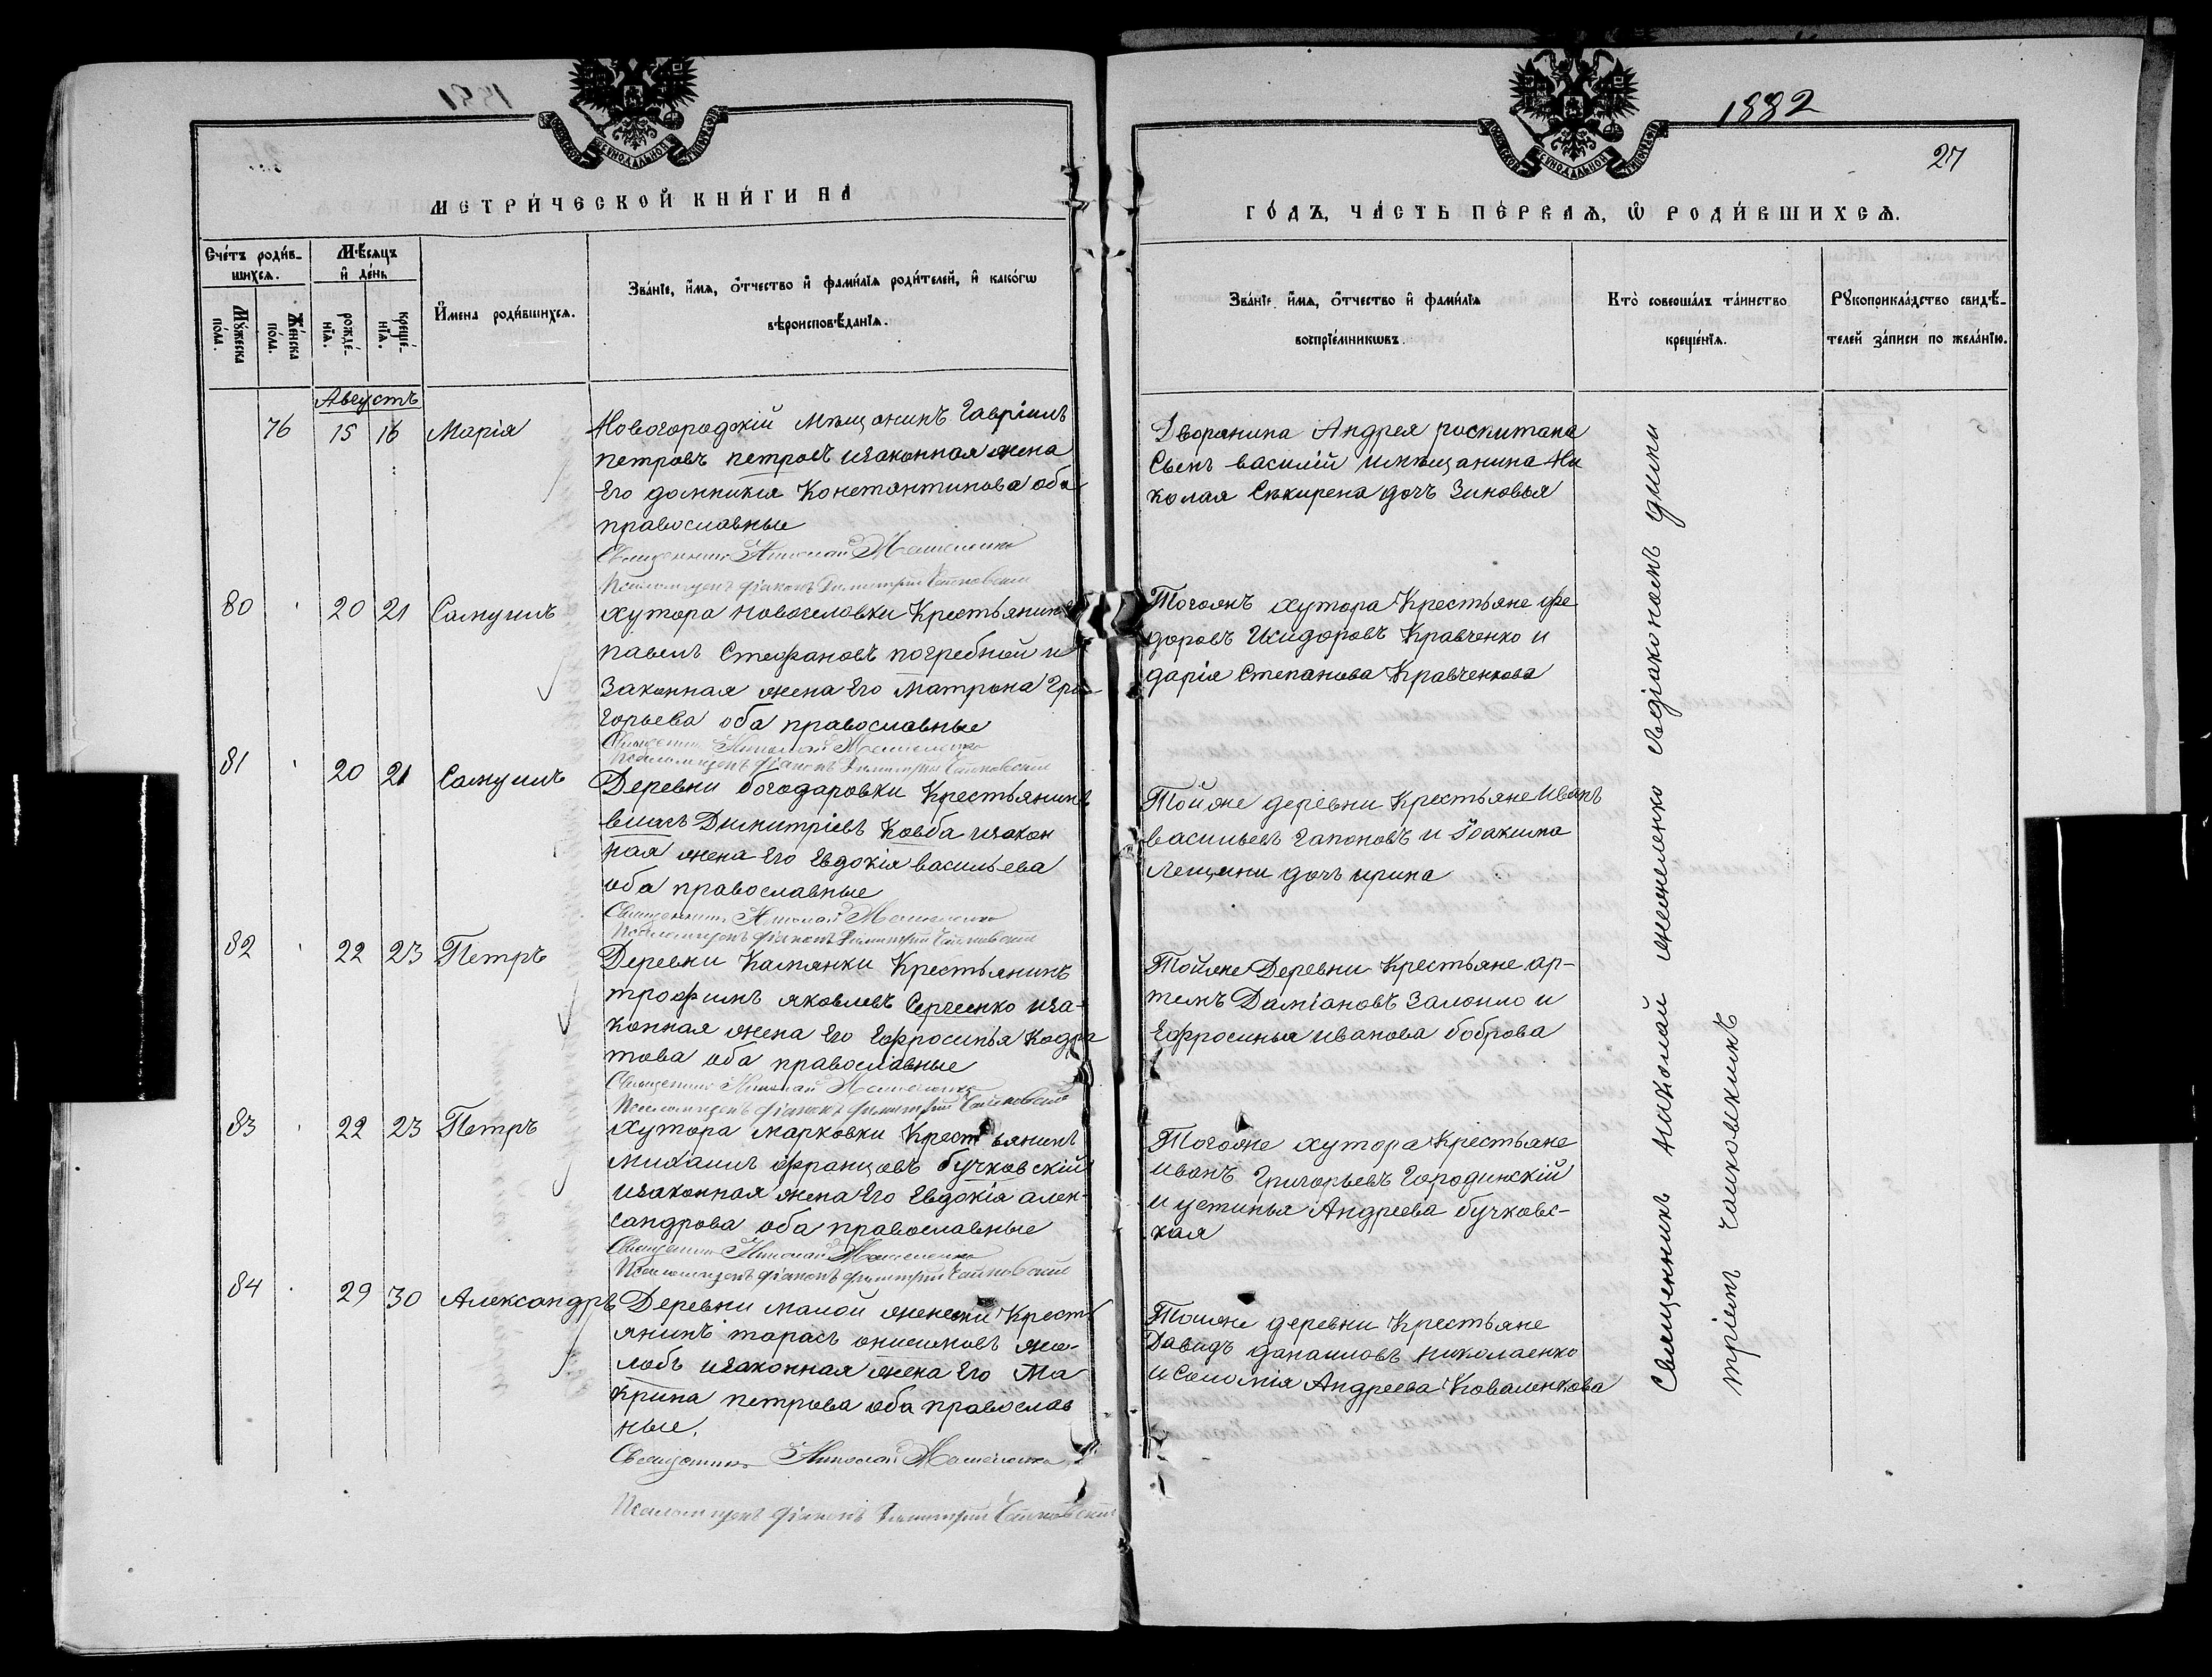 1881
1882
27
МЕТРИ́ЧЕСКОЙ КНИ́ГИ НА̀
ГО́ДЪ, ЧА́СТЬ ПЕ́РВАѦ, Ѡ҆ РОДИ́ВШИХСѦ.
Сче́тъ роди́в-
шихсѧ.
Мѣ́сѧцъ
и҆ де́нь
Му́жеска
по́ла.
Же́нска
по́ла.
рожде́-
нїѧ.
креще́-
нїѧ.
И҆мена роди́вшихсѧ.
Зва́нїе, и҆́мѧ, ѻ҆́тчество и҆ фами́лїѧ роди́телей, и҆ како́гѡ
вѣроисповѣ́данїѧ.
Зва́нїе, и҆́мѧ, ѻ҆́тчество и҆ фами́лїѧ
воспрїе́мникѡвъ.
Кто̀ соверша́лъ та́инство
креще́нїѧ.
Рꙋкоприкла́дство свидѣ́-
телей за́писи по жела́нїю.
Августъ
76 15 16 Марія
Новогородскій мѣщанинъ Гавріилъ
петровъ петровъ изаконная жена
Его домникія Константинова оба
православные
Священникъ Николай
Псаломщикъ діаконъ Димитрій Чайковскій
Дворянина Андрея
Сынъ василій имѣщанина Ни
колая Секирена дочь Зиновья
80 20 21 Самуилъ
хутора новоселовки Крестьянинъ
павелъ Стефановъ погребной и
Законная жена Его Матрона Гри-
горьева оба православные
Священникъ Николай
Псаломщикъ діаконъ Димитрій Чайковскій
Тогожъ хутора Крестьяне фе
доровъ Исидоровъ Кравченко и
дарія Степанова Кравченкова
81 20 21 Самуилъ
Деревни богодаровки Крестьянинъ
власъ Димитріевъ Ковба изакон
ная жена Его Евдокія васильева
оба православные
Священникъ Николай
Псаломщикъ діаконъ Димитрій Чайковскій
Тойже деревни Крестьяне Иванъ
васильевъ гапоновъ и Іоакима
Лещини дочь ирина
82 22 23 Петръ
Деревни Камянки Крестьянинъ
трофимъ яковлевъ Сергеенко иза-
конная жена Его Ефросинья Кодра
това оба православные
Священникъ Николай
Псаломщикъ діаконъ Димитрій Чайковскій
Тойже Деревни Крестьяне ар-
темъ Даміановъ и
Ефросинья иванова боброва
83 22 23 Петръ
хутора марковки Крестьянинъ
михаилъ францовъ бучковскій
изаконная жена Его Евдокія алек-
сандрова оба православные
Священникъ Николай
Псаломщикъ діаконъ Димитрій Чайковскій
Тогоже хутора Крестьяне
иванъ Григорьевъ Городинскій
и устинья Андреева бучковс-
кая
84 29 30 Александръ
Деревни малой Кресть
янинъ тарасъ онисимовъ жо-
лобъ изаконная жена Его Ма
крина петрова оба православ
ные.
Священникъ Николай
Псаломщикъ діаконъ Димитрій Чайковскій
Тойже деревни Крестьяне
Давидъ даниловъ николаенко
и Соломія Андреева Коваленкова
Священникъ николай съдіакономъ дими
тріемъ чайковскимъ